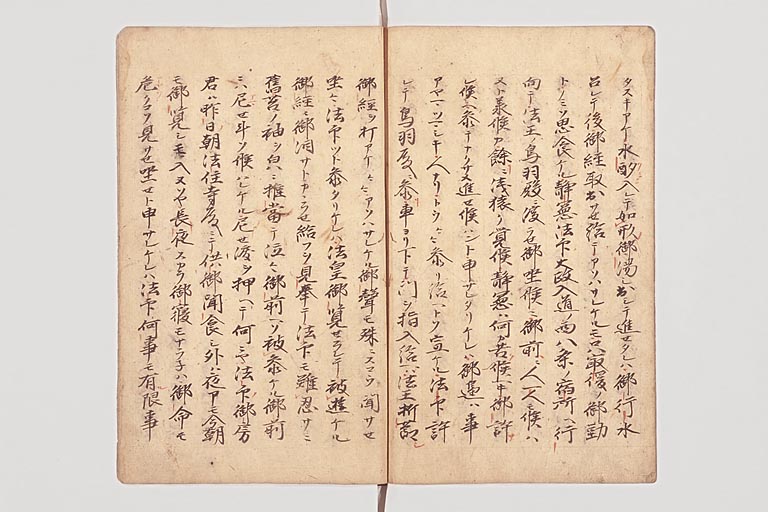 タスキアケ水酌入レテ如形御湯シ出シテ進セタレハ御行水
召シテ後御経取出サセ給テアソハサレケルモロハ最後ノ御勤
トノミソ思食ケル静憲法印大政入道ノ西八条ノ宿所ヘ行
向テ法王ノ鳥羽殿ニ渡ラセ御坐候ニ御前ニ人一人モ候ハ
ヌト承候カ余ニ浅猿ク覚候静憲ハ何カ苦候ヘキ御許
レ候ヘ参テナクサメ進セ候ハント申サレタリケレハ御房ハ事
アヤマツマシキ人ナリトウ〱参リ給ヘトソ宣ケル法印許
シテ鳥羽殿ヘ参車ヨリ下テ門ヲ指入給ヘハ法王折節
御経ヲ打アケ〱アソハサレケル御聲モ殊ニスコウ聞サセ
坐ケル法印ツト参タリケレハ法皇御覧セラレテ被遊ケル
御経ニ御涙サト ラセ給フヲ見奉テ法印モ難忍サニ
舊苔ノ袖ヲ白ニ推當テ泣〻御前ヘソ被参ケル御前
ニハ尼セ斗ソ候ハレケル尼セ涙ヲ押ヘテ何ニヤ法印御房
君ハ昨日朝法住寺殿ニテ供御聞食シ外ハ夜アモ今朝
モ御覧シモ入ヌソヤ長夜スカラ御寝モナラネハ御命モ
危クコソ見サセ坐セト申サレケレハ法印何事モ有限事